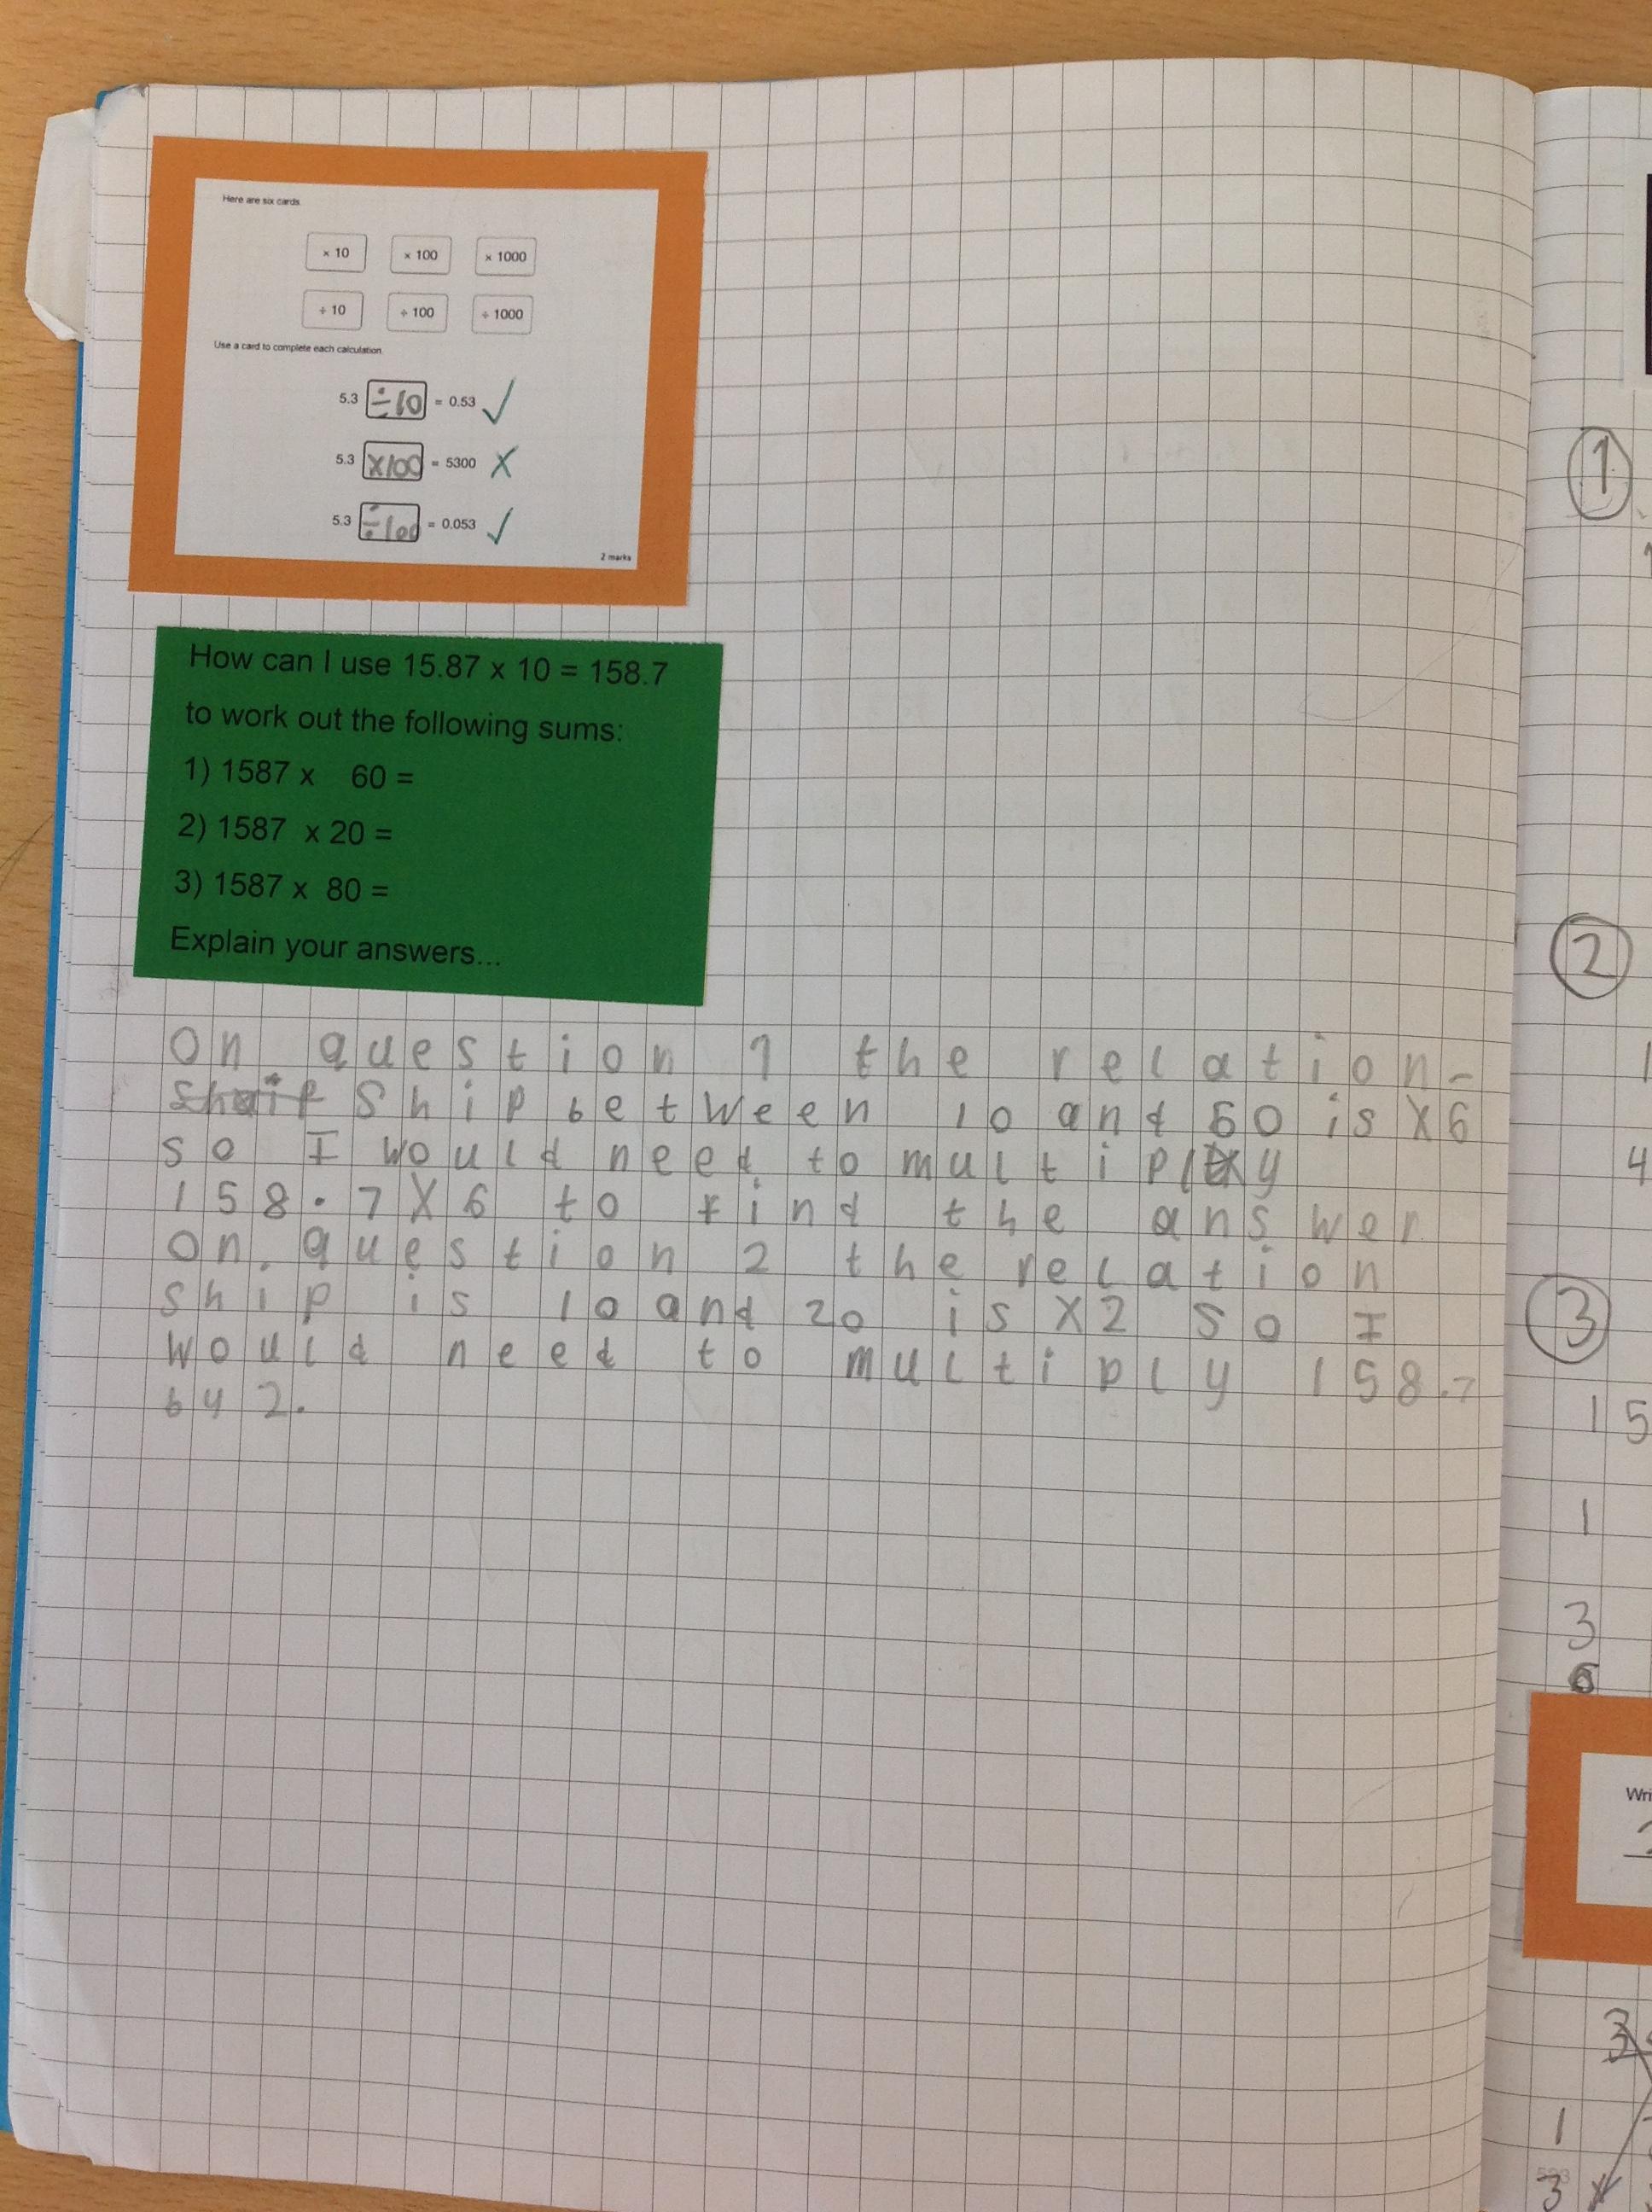 Here are six cards
× 10 × 100 × 1000
÷ 10 ÷ 100 ÷ 1000
Use a card to complete each calculation
5.3 ÷10 = 0.53 ✓
5.3 ×100 = 5300 X
5.3 ÷100 = 0.053 ✓
2 marks
How can I use 15.87 x 10 = 158.7
to work out the following sums:
1) 1587 x 60 =
2) 1587 x 20 =
3) 1587 x 80 =
Explain your answers...
On question 1 the relation-
ship between 10 and 60 is X6
so I would need to multiply
158.7X6 to find the answer
on. question 2 the relation
ship is 10 and 20 is X2 so I
would need to multiply 158.7
by 2.
1
1
2
1
4
3
1 5
1
3
6
Wri
3
1
3